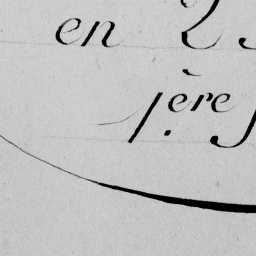 en 2
1ère